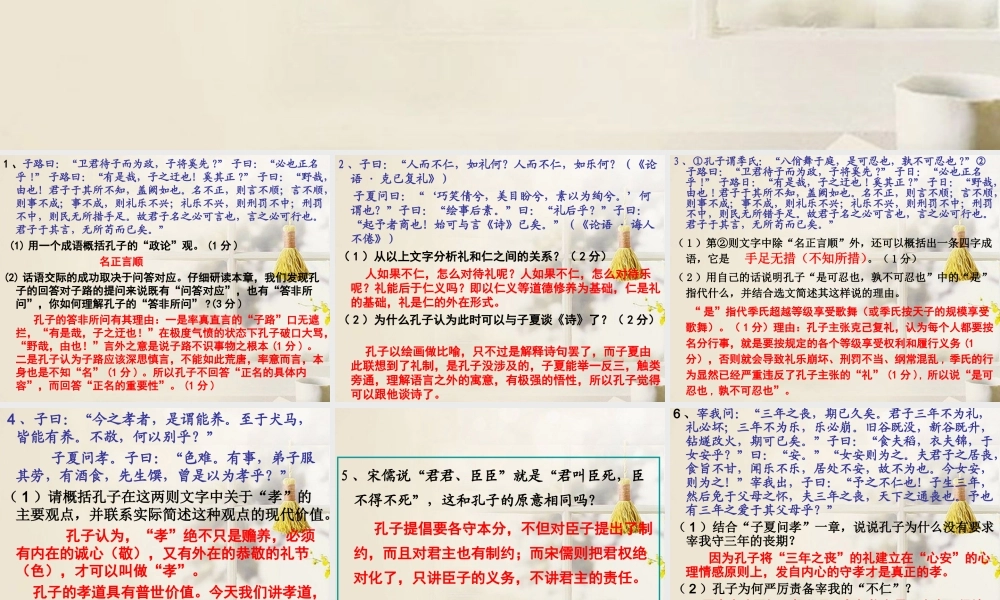 1、子路曰：“卫君待子而为政，子将奚先？”子曰：“必也正名
乎！”子路曰：“有是哉，子之迂也！奚其正？”子曰：“野哉，
由也！君子于其所不知，盖阙如也。名不正，则言不顺；言不顺，
则事不成；事不成，则礼乐不兴；礼乐不兴，则刑罚不中；刑罚
不中，则民无所措手足。故君子名之必可言也，言之必可行也。
君子于其言，无所苟而已矣。”
⑴ 用一个成语概括孔子的“政论”观。（1 分）
名正言顺
⑵ 话语交际的成功取决于问答对应。仔细研读本章，我们发现孔
子的回答对子路的提问来说既有“问答对应”，也有“答非所
问”，你如何理解孔子的“答非所问”？(3 分 )
孔子的答非所问有其理由：一是率真直言的“子路”口无遮
拦，“有是哉，子之迂也！”在极度气愤的状态下孔子破口大骂，
“野哉，由也！”言外之意是说子路不识事物之根本（1 分）。
二是孔子认为子路应该深思慎言，不能如此荒唐，率意而言，本
身也是不知“名”（1 分）。所以孔子不回答“正名的具体内
容”，而回答“正名的重要性”。（1 分）
2、子曰：“人而不仁，如礼何？人而不仁，如乐何？（《论
语 · 克己复礼》）
子夏问曰：“‘巧笑倩兮，美目盼兮，素以为绚兮。’何
谓也？”子曰：“绘事后素。”曰：“礼后乎？”子曰：
“起予者商也！始可与言《诗》已矣。”（《论语 · 诲人
不倦》）
（1）从以上文字分析礼和仁之间的关系？（2 分）
人如果不仁，怎么对待礼呢？人如果不仁，怎么对待乐
呢？礼能后于仁义吗？即以仁义等道德修养为基础，仁是礼
的基础，礼是仁的外在形式。
（2）为什么孔子认为此时可以与子夏谈《诗》了？（2 分）
孔子以绘画做比喻，只不过是解释诗句罢了，而子夏由
此联想到了礼制，是孔子没涉及的，子夏能举一反三，触类
旁通，理解语言之外的寓意，有极强的悟性，所以孔子觉得
可以跟他谈诗了。
3、①孔子谓季氏：“八佾舞于庭，是可忍也，孰不可忍也？”②
子路曰：“卫君待子而为政，子将奚先？”子曰：“必也正名
乎！”子路曰：“有是哉，子之迂也！奚其正？”子曰：“野哉，
由也！君子于其所不知，盖阙如也。名不正，则言不顺；言不顺，
则事不成；事不成，则礼乐不兴；礼乐不兴，则刑罚不中；刑罚
不中，则民无所错手足。故君子名之必可言也，言之必可行也。
君子于其言，无所苟而已矣。”
（1）第②则文字中除“名正言顺”外，还可以概括出一条四字成
语，它是 手足无措（不知所措）。（1 分）
（2）用自己的话说明孔子“是可忍也，孰不可忍也”中的“是”
指代什么，并结合选文简述其这样说的理由。
“是”指代季氏超越等级享受歌舞（或季氏按天子的规模享受
歌舞）。（1 分）理由：孔子主张克己复礼，认为每个人都要按
名分行事，就是要按规定的各个等级享受权利和履行义务（1
分），否则就会导致礼乐崩坏、刑罚不当、纲常混乱，季氏的行
为显然已经严重违反了孔子主张的“礼”（1 分），所以说“是可
忍也，孰不可忍也”。
4、子曰：“今之孝者，是谓能养。至于犬马，
皆能有养。不敬，何以别乎？”
子夏问孝。子曰：“色难。有事，弟子服
其劳，有酒食，先生馔，曾是以为孝乎？”
（1）请概括孔子在这两则文字中关于“孝”的
主要观点，并联系实际简述这种观点的现代价值。
孔子认为，“孝”绝不只是赡养，必须
有内在的诚心（敬），又有外在的恭敬的礼节
（色），才可以叫做“孝”。
孔子的孝道具有普世价值。今天我们讲孝道，
5、宋儒说“君君、臣臣”就是“君叫臣死，臣
不得不死”，这和孔子的原意相同吗？
孔子提倡要各守本分，不但对臣子提出了制
约，而且对君主也有制约；而宋儒则把君权绝
对化了，只讲臣子的义务，不讲君主的责任。
6、宰我问：“三年之丧，期已久矣。君子三年不为礼，
礼必坏；三年不为乐，乐必崩。旧谷既没，新谷既升，
钻燧改火，期可已矣。”子曰：“食夫稻，衣夫锦，于
女安乎？”曰：“安。”“女安则为之。夫君子之居丧，
食旨不甘，闻乐不乐，居处不安，故不为也。今女安，
则为之！”宰我出，子曰：“予之不仁也！子生三年，
然后免于父母之怀，夫三年之丧，天下之通丧也，予也
有三年之爱于其父母乎？”
（1）结合“子夏问孝”一章，说说孔子为什么没有要求
宰我守三年的丧期？
因为孔子将“三年之丧”的礼建立在“心安”的心
理情感原则上，发自内心的守孝才是真正的孝。
（2）孔子为何严厉责备宰我的“不仁”？